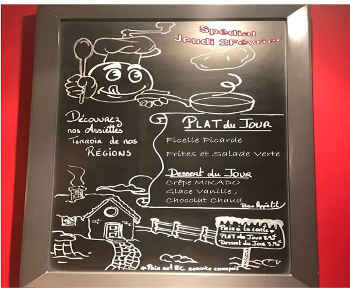 Spécial
Jeudi 2 Février
Découvrez
nos Assiettes
Terroir de nos
RÉGIONS
PLAT du JOUR
Ficelle Picarde
Frites et Salade Verte
Dessert du Jour
Crêpe MIKADO
Glace Vanille,
Chocolat Chaud
Bon Appétit
Prix à la carte
PLAT du Jour
Dessert du Jour
Prix net service compris